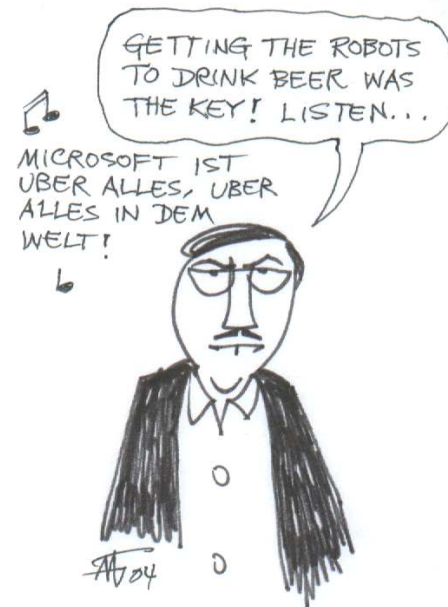 GETTING THE ROBOTS
TO DRINK BEER WAS
THE KEY! LISTEN...
MICROSOFT IST
UBER ALLES, UBER
ALLES IN DEM
WELT!
04